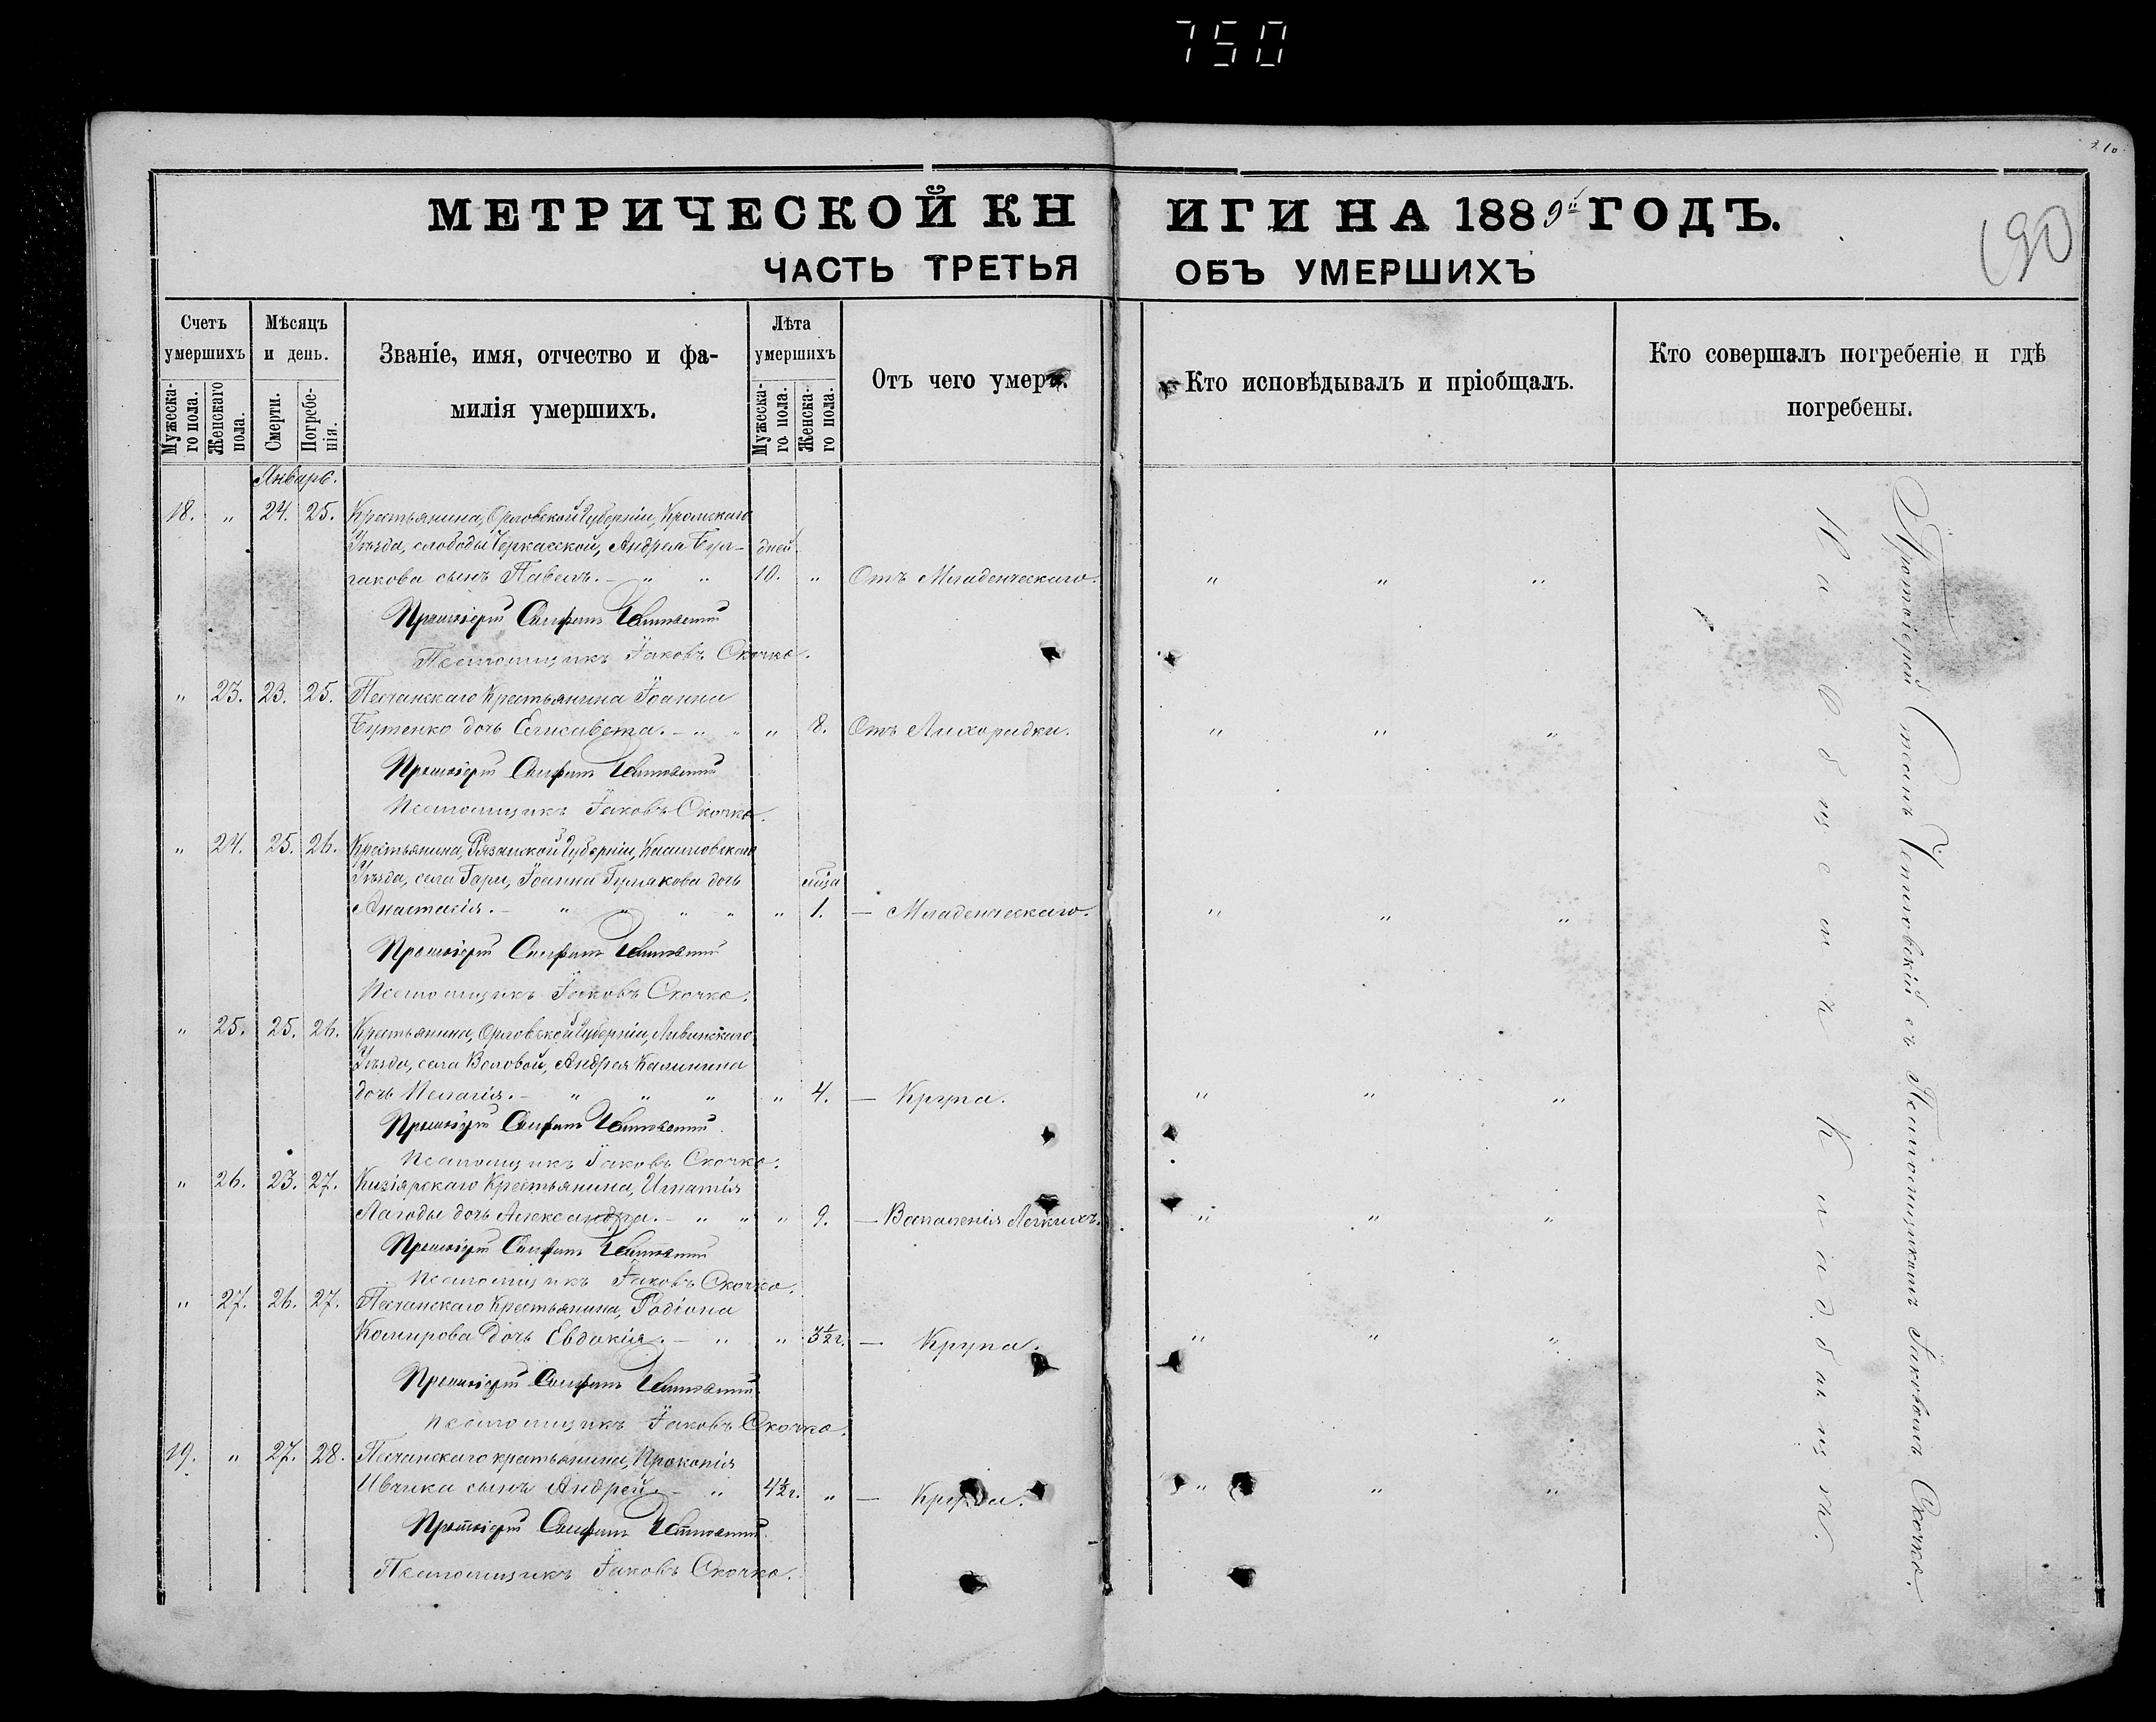 750
210
МЕТРИЧЕСКОЙ КНИГИ НА 1889й ГОДЪ.
190
ЧАСТЬ ТРЕТЬЯ ОБЪ УМЕРШИХЪ
Счетъ умершихъ
Мѣсяцъ и день.
Званіе, имя, отчество и фамилія умершихъ.
Лѣта умершихъ
Отъ чего умеръ.
Кто исповѣдывалъ и пріобщалъ.
Кто совершалъ погребеніе и гдѣ погребены.
Мужескаго пола.
Женскаго пола.
Смерти.
Погребенія.
Мужескаго пола.
Женскаго пола.
Январь.
18. " 24. 25. Крестьянина, Орловской Губерніи, Кромскаго
Уѣзда, слободы Черкасской, Андрея Бул- дней
гакова сынъ Павелъ. — " " 10. " Отъ Младенческаго. " " "
Протоіерей
Псаломщикъ Іаковъ Скочко.
" 23. 23. 25. Песчанскаго Крестьянина Іоанна
Бутенко дочь Елисавета. — " " " 8. Отъ Лихорадки. " " "
Протоіерей
Псаломщикъ Іаковъ Скочко.
" 24. 25. 26. Крестьянина, Рязанской Губерніи, Касимовскаго
Уѣзда, села Гари, Іоанна Гулякова дочь мѣсца
Анастасія. — " " " " " 1. — Младенческаго. " " "
Протоіерей
Псаломщикъ Іаковъ Скочко.
" 25. 25. 26. Крестьянина, Орловской Губерніи, Ливинскаго
Уѣзда, села Воловой, Андрея Калинина
дочь Пелагія. — " " " " 4. — Крупа. " " "
Протоіерей
Псаломщикъ Іаковъ Скочко.
" 26. 23. 27. Кизіярскаго Крестьянина, Игнатія
Лагоды дочь Александра. — " " " 9. — Воспаленія Легкихъ. " " "
Протоіерей
Псаломщикъ Іаковъ Скочко.
" 27. 26. 27. Песчанскаго Крестьянина, Родіона
Комирова дочь Евдокія. — " " 3½ г. — Крупа. " " "
Протоіерей
Псаломщикъ Іаковъ Скочко.
19. " 27. 28. Песчанскаго крестьянина, Прокопія
Ивчика сынъ Андрей. — " 4½ г. " — Крупа. " " "
Протоіерей
Псаломщикъ Іаковъ Скочко.
Протоіерей съ Псаломщикомъ Іаковомъ Скочко.
На Общемъ Кладбищѣ.